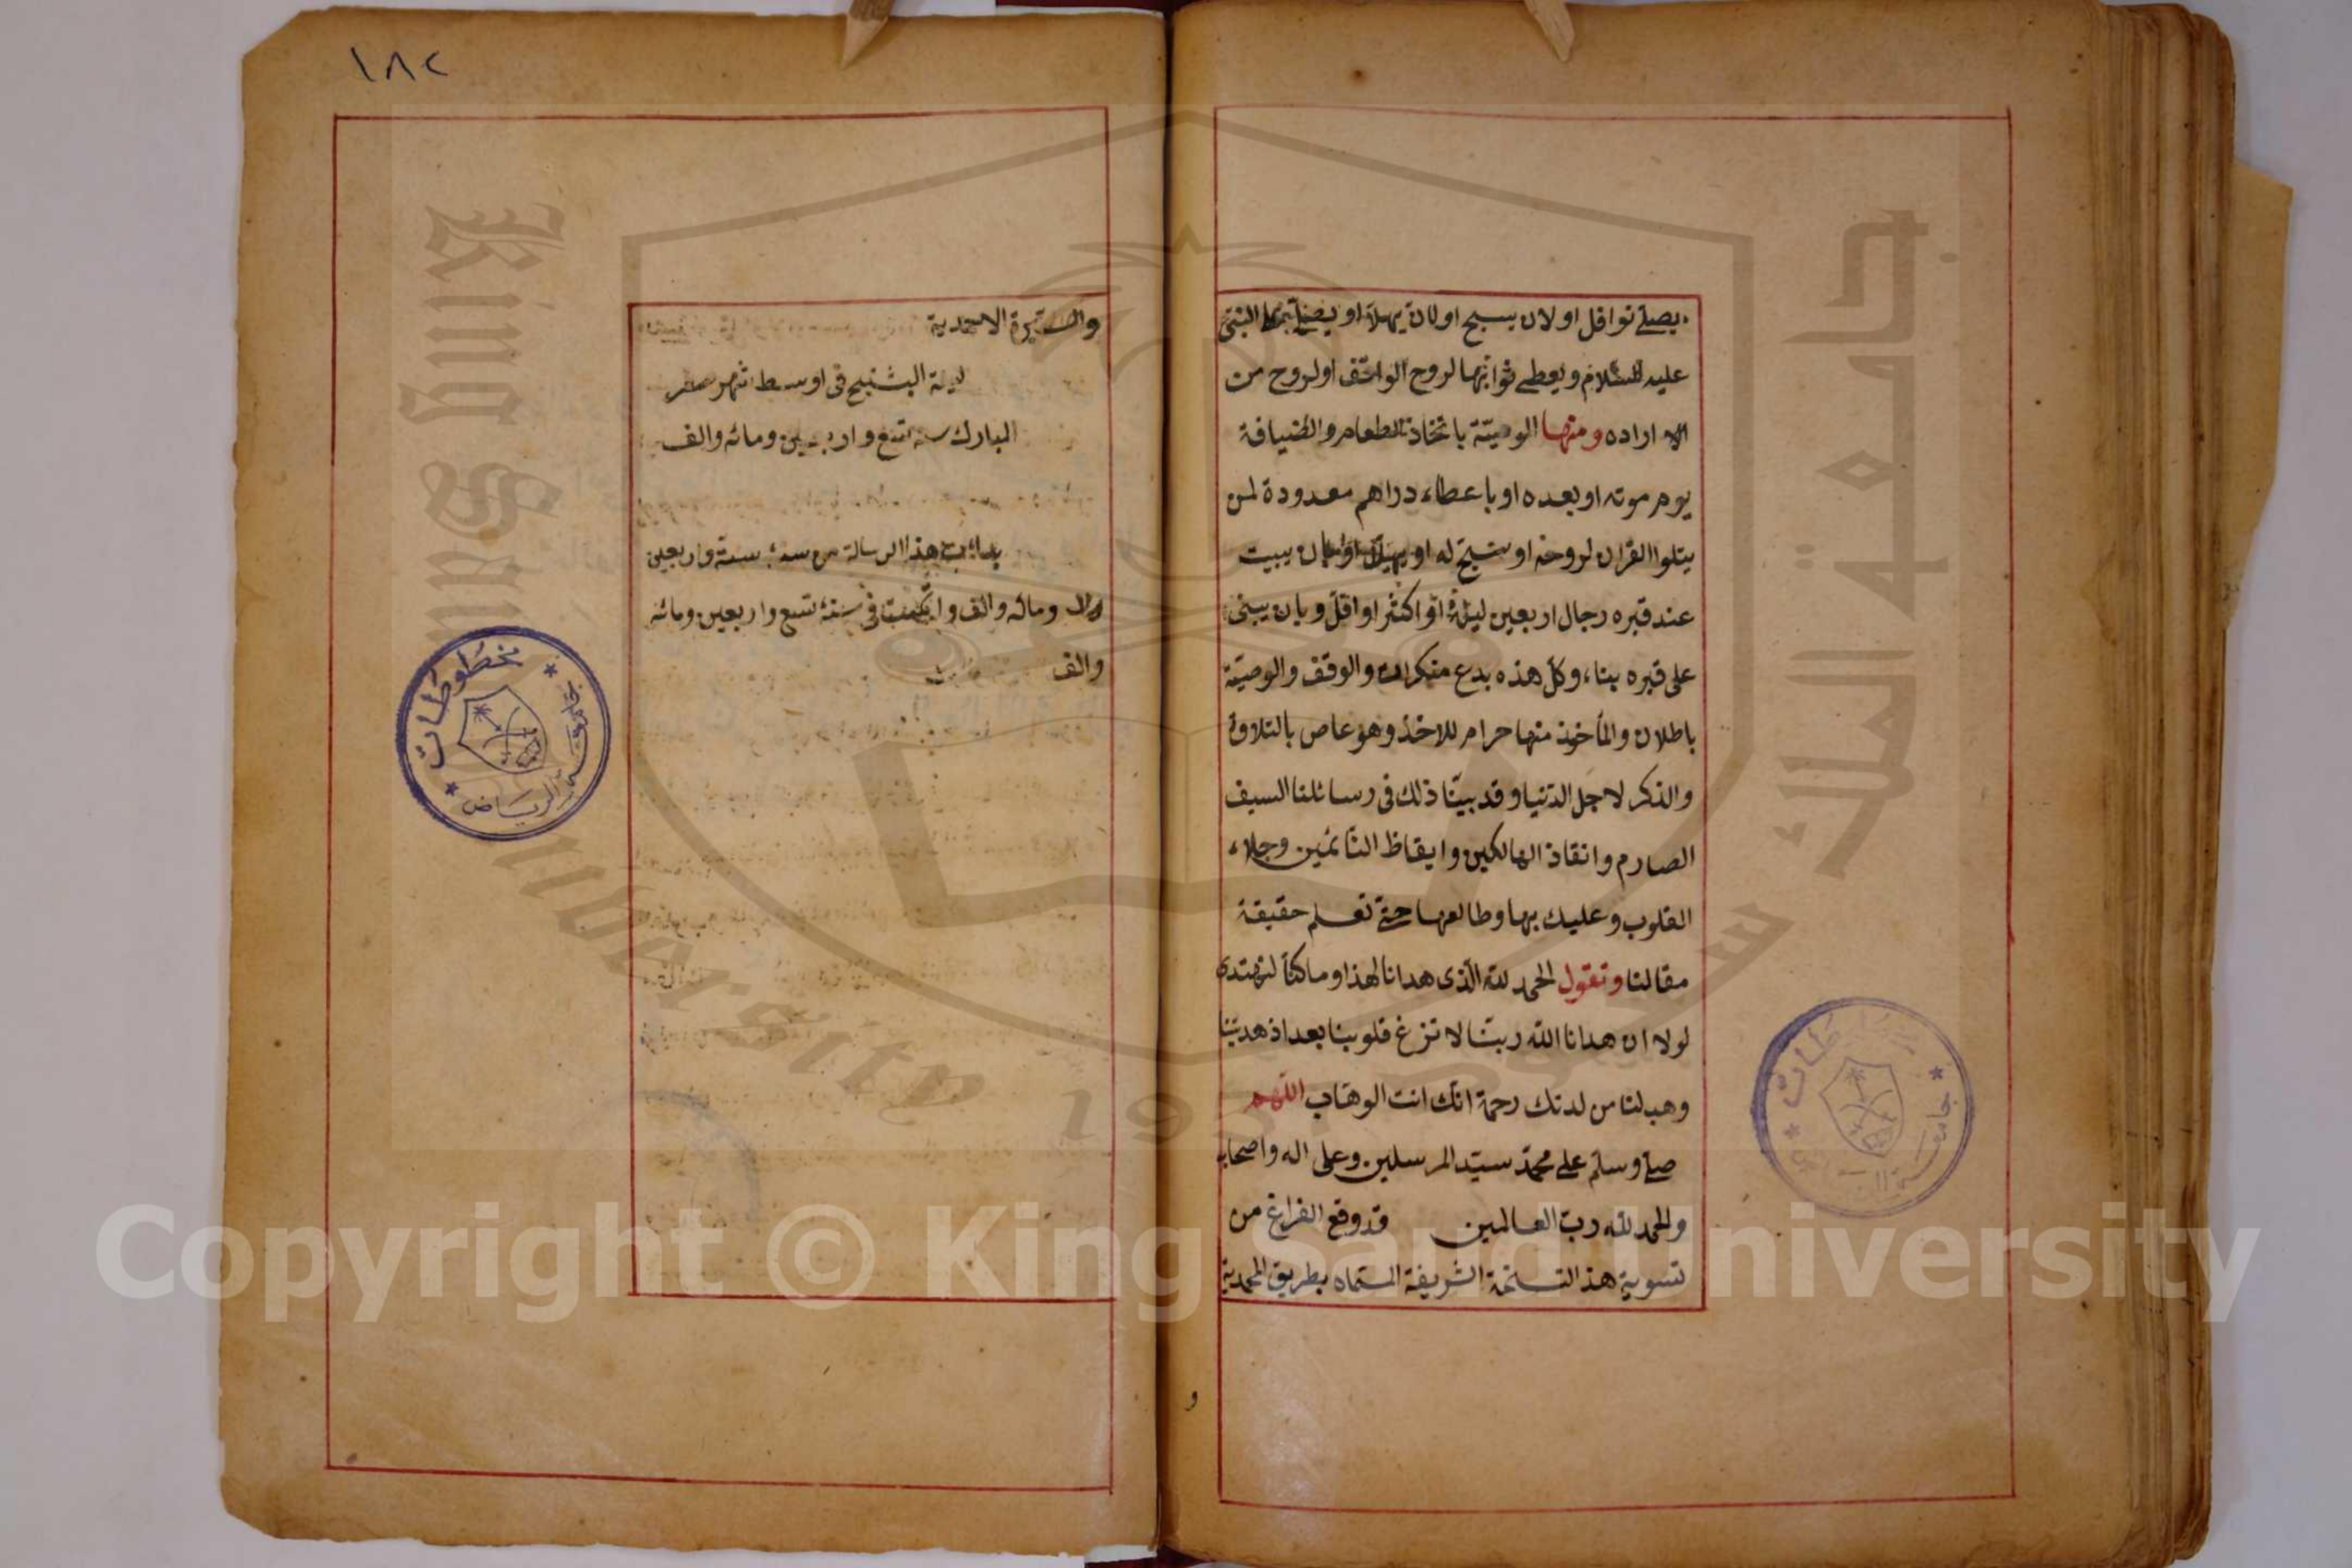 يصلى نوافل او لان يسبح او لان يهلل او يصلى على النبى
عليه السلام ويعطى ثوابها لروح الواقف او لروح من
اراده ومنها الوصية باتخاذ الطعام والضيافة
يوم موته او بعده او باعطاء دراهم معدودة لمن
يتلوا القران لروحه او يسبح له او يهلل او بان يبيت
عند قبره رجال اربعين ليلة او اكثر او اقل وبان يبنى
على قبره بناء وكل هذه بدع منكرات والوقف والوصية
باطلان والمأخوذ منها حرام للاخذ وهو عاص بالتلاوة
والذكر لاجل الدنيا وقد بينا ذلك فى رسائلنا السيف
الصارم وانقاذ الهالكين وايقاظ النائمين وجلاء
القلوب وعليك بها وطالعها حتى تعلم حقيقة
مقالنا وتقول الحمد لله الذى هدانا لهذا وما كنا لنهتدى
لولا ان هدانا الله ربنا لا تزغ قلوبنا بعد اذ هديتنا
وهب لنا من لدنك رحمة انك انت الوهاب اللهم
صلى وسلم على محمد سيد المرسلين وعلى اله واصحابه
والحمد لله رب العالمين قد وقع الفراغ من
تسوية هذ النسخة الشريفة المسماه بطريق المحمدية
و
١٨٢
والسيرة الاحمدية
ليلة فى اوسط شهر صفر
المبارك سنه تسع واربعين ومائه والف
هذا الرسالة من سنة ستة واربعين
ومائه والف و فى سنة تسع واربعين ومائه
والف
مخطوطات
جامعة الرياض
جامعة الملك سعود
King Saud University
Copyright © King Saud University